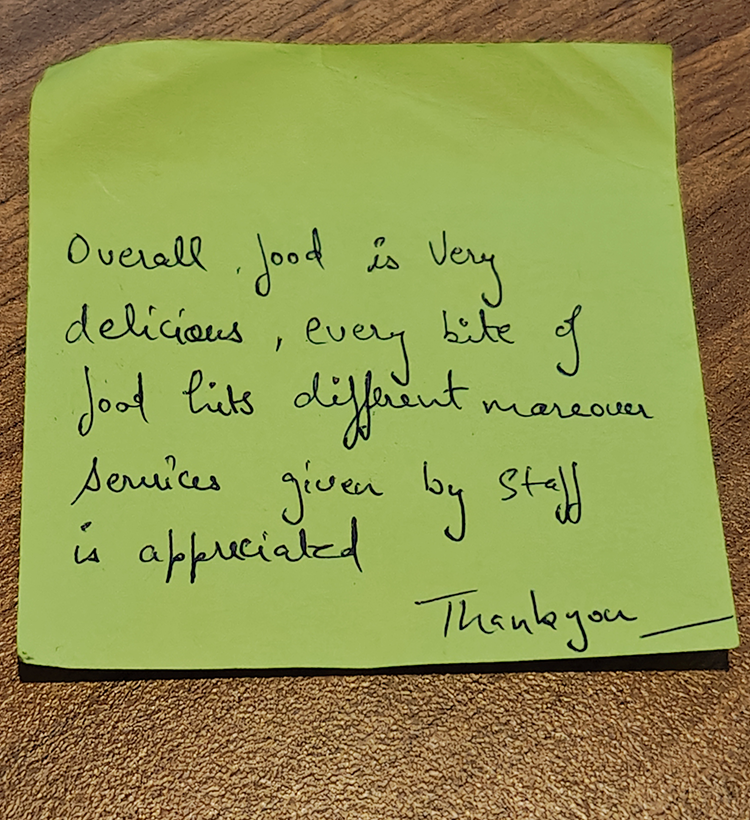 Overall, food is Very
delicious, every bite of
food hits different moreover
services given by Staff
is appreciated
Thankyou